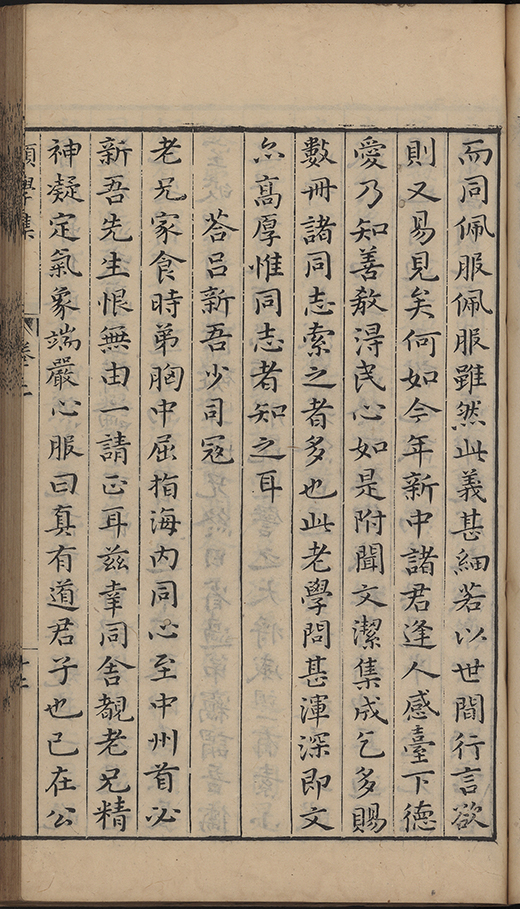 而同佩服佩服雖然此義甚細若以世間行言欲
則又易見矣何如今年新中諸君逢人感臺下德
愛乃知善教淂民心如是附聞文潔集成乞多賜
數冊諸同志索之者多也此老學問甚渾深即文
尒髙厚惟同志者知之耳
荅吕新吾少司冦
老兄家食時弟胸中屈指海内同心至中州首必
新吾先生恨無由一請正耳兹幸同舍覩老兄精
神凝定氣象端嚴心服曰真有道君子也已在公
學集
卷之